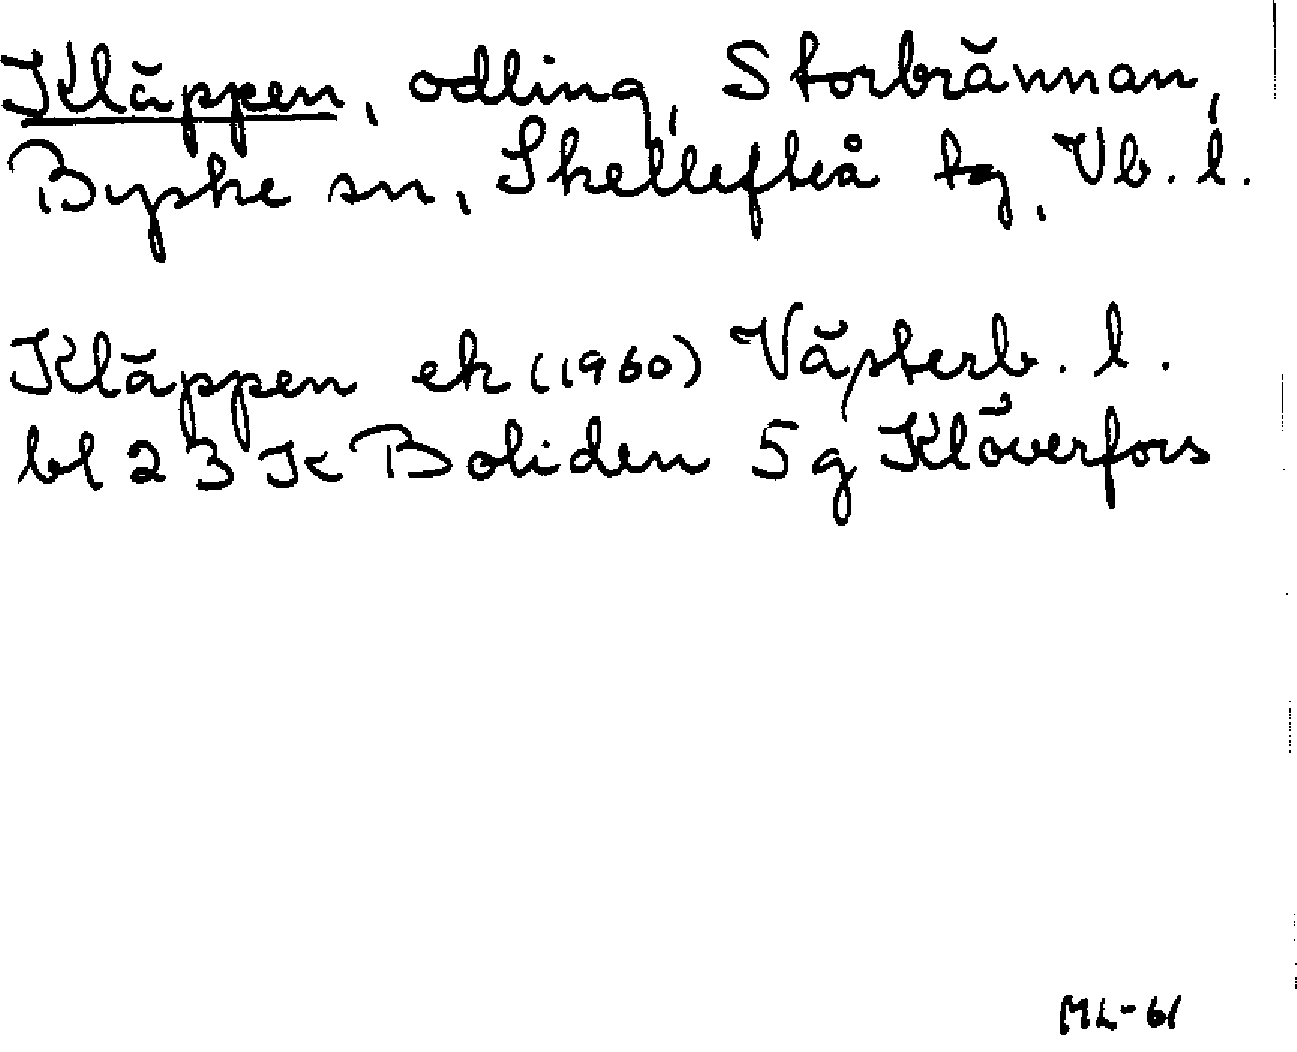 Kläppen, odling, Storbrännan,
Byske sn, Skellefteå tg, Vb. l.
Kläppen ek (1960) Västerb. l.
bl 23 K Boliden 5g Klöverfors
ML-61